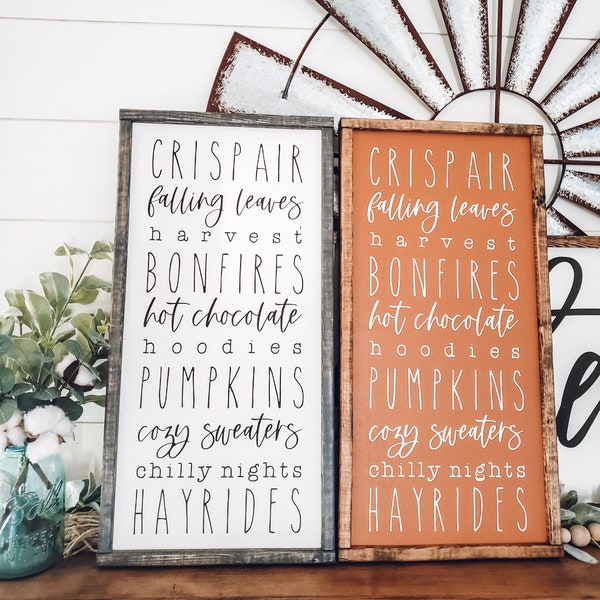 CRISPAIR
falling leaves
harvest
BONFIRES
hot chocolate
hoodies
PUMPKINS
cozy sweaters
chilly nights
HAYRIDES
CRISPAIR
falling leaves
harvest
BONFIRES
hot chocolate
hoodies
PUMPKINS
cozy sweaters
chilly nights
HAYRIDES